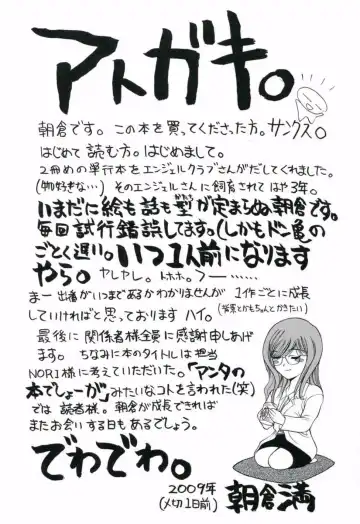 アトガキ。
朝倉です。この本を買ってくださった方。サンクス。
はじめて読む方。はじめまして。
2冊めの単行本をエンジェルクラブさんがだしてくれました。
(物好きな…) そのエンジェルさんに飼育されてはや3年。
いまだに絵も話も型が定まらぬ朝倉です。
毎回試行錯誤してます。(しかもドン亀の
ごとく遅い)。いつ1人前になります
やら。ヤレヤレ。トホホ。フー……
まー出番がいつまであるかわかりませんが 1作ごとに成長
していければと思っております ハイ。
最後に関係者様全員に感謝申しあげ
ます。ちなみに本のタイトルは担当
NORI様に考えていただいた。「アンタの
本でしょーが」みたいなコトを言われた(笑)
では 読者様。朝倉が成長できれば
またお会いする日もあるでしょう。
でわでわ。
2009年
(〆切1日前)
朝倉満